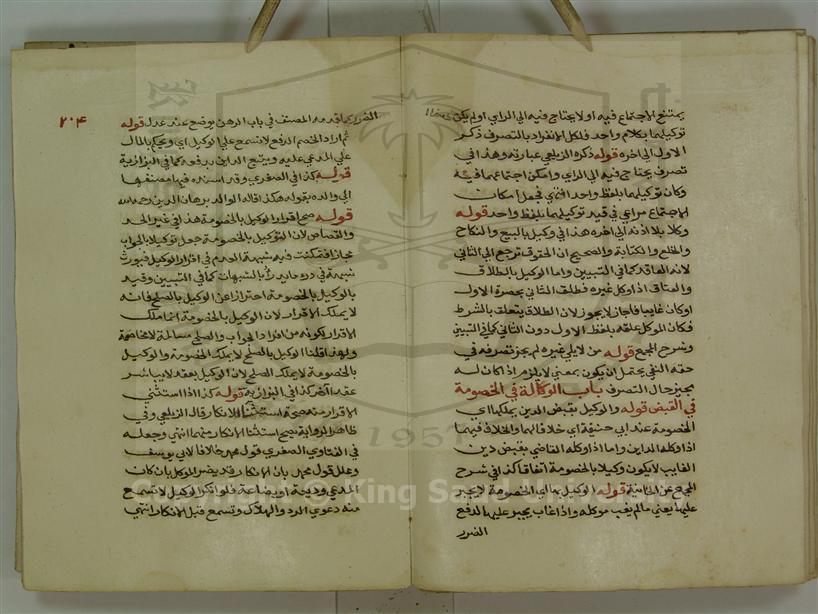 يمتنع الاجتماع فيه او لا يحتاج فيه الي الراي او لم يكن
توكيلهما بكلام واحد فلكل الانفراد بالتصرف ذكر
الاول الي اخره قوله ذكره الزيلعي عبارته وهذا في
تصرف يحتاج فيه الي الراي وامكن اجتماعهما فيه
وكان توكيلهما بلفظ واحد انتهي فجعل امكان
الاجتماع مراعي في قيد توكيلهما بلفظ واحد قوله
وكلا بلا اذنه الي اخره هذا في وكيل بالبيع والنكاح
والخلع والكتابة والصحيح ان الحقوق ترجع الي الثاني
لانه العاقد كما في التبيين واما الوكيل بالطلاق
والعتاق اذا وكل غيره فطلق الثاني بحضرة الاول
او كان غايبا فاجاز لا يجوز لان الطلاق يتعلق بالشرط
فكان الموكل علقه بلفظ الاول دون الثاني كما في التبيين
وشرح المجمع قوله من لا يلي غيره لم يجز تصرفه في
حقه النفي يحتمل ان يكون بمعني لا يلزم اذا كان له
مجيز حال التصرف باب الوكالة في الخصومة
في القبض قوله والوكيل بقبض الدين يملكها اي
الخصومة عند ابي حنيفة اي خلافا لهما والخلاف فيهما
اذا وكله الداين واما اذا وكله القاضي بقبض دين
الغايب لا يكون وكيلا بالخصومة اتفاقا كذا في شرح
المجمع عن الخانية قوله الوكيل بها الي الخصومة لا يجبر
عليها يعني ما لم يغب موكله واذا غاب يجبر عليها لدفع
الضرر
٢٠٤
الضرر كما قدمه المصنف في باب الرهن يوضع عند عدل قوله
ثم اراد الخصم الدفع لا تسمع علي الوكيل اي ويحكم بالمال
علي المدعي عليه ويتبع الداين بدفعه كما في البزازية
قوله كذا في الصغري وقد اسنده فيها مصنفها
الي والده بقوله هكذا قاله الوالد برهان الدين رحمه الله
قوله صح اقرار الوكيل بالخصومة هذا في غير الحد
والقصاص لان التوكيل بالخصومة جعل توكيلا بالجواب
مجازا فتمكنت فيه شبهة العدم في اقرار الوكيل فيورث
شبهة في درء ما يدرأ بالشبهات كما في التبيين وقيد
بالوكيل بالخصومة احترازا عن الوكيل بالصلح فانه
لا يملك الاقرار لان الوكيل بالخصومة انما ملك
الاقرار لكونه من افراد الجواب والصلح مسالمة لا مخاصمة
ولهذا قلنا الوكيل بالصلح لا يملك الخصومة والوكيل
بالخصومة لا يملك الصلح لان الوكيل بعقد لا يباشر
عقدا اخر كذا في البزازية قوله كذا اذا استثني
الاقرار منه صح استثنا الانكار قاله الزيلعي وفي
ظاهر الرواية يصح استثنا الانكار منهما انتهي وجعله
في الفتاوي الصغري قول محمد خلافا لابي يوسف
وعلل قول محمد بان الانكار قد يضر الموكل بان كان
المدعي وديعة او بضاعة فلو انكر الوكيل لا تسمع
منه دعوي الرد والهلاك وتسمع قبل الانكار انتهي